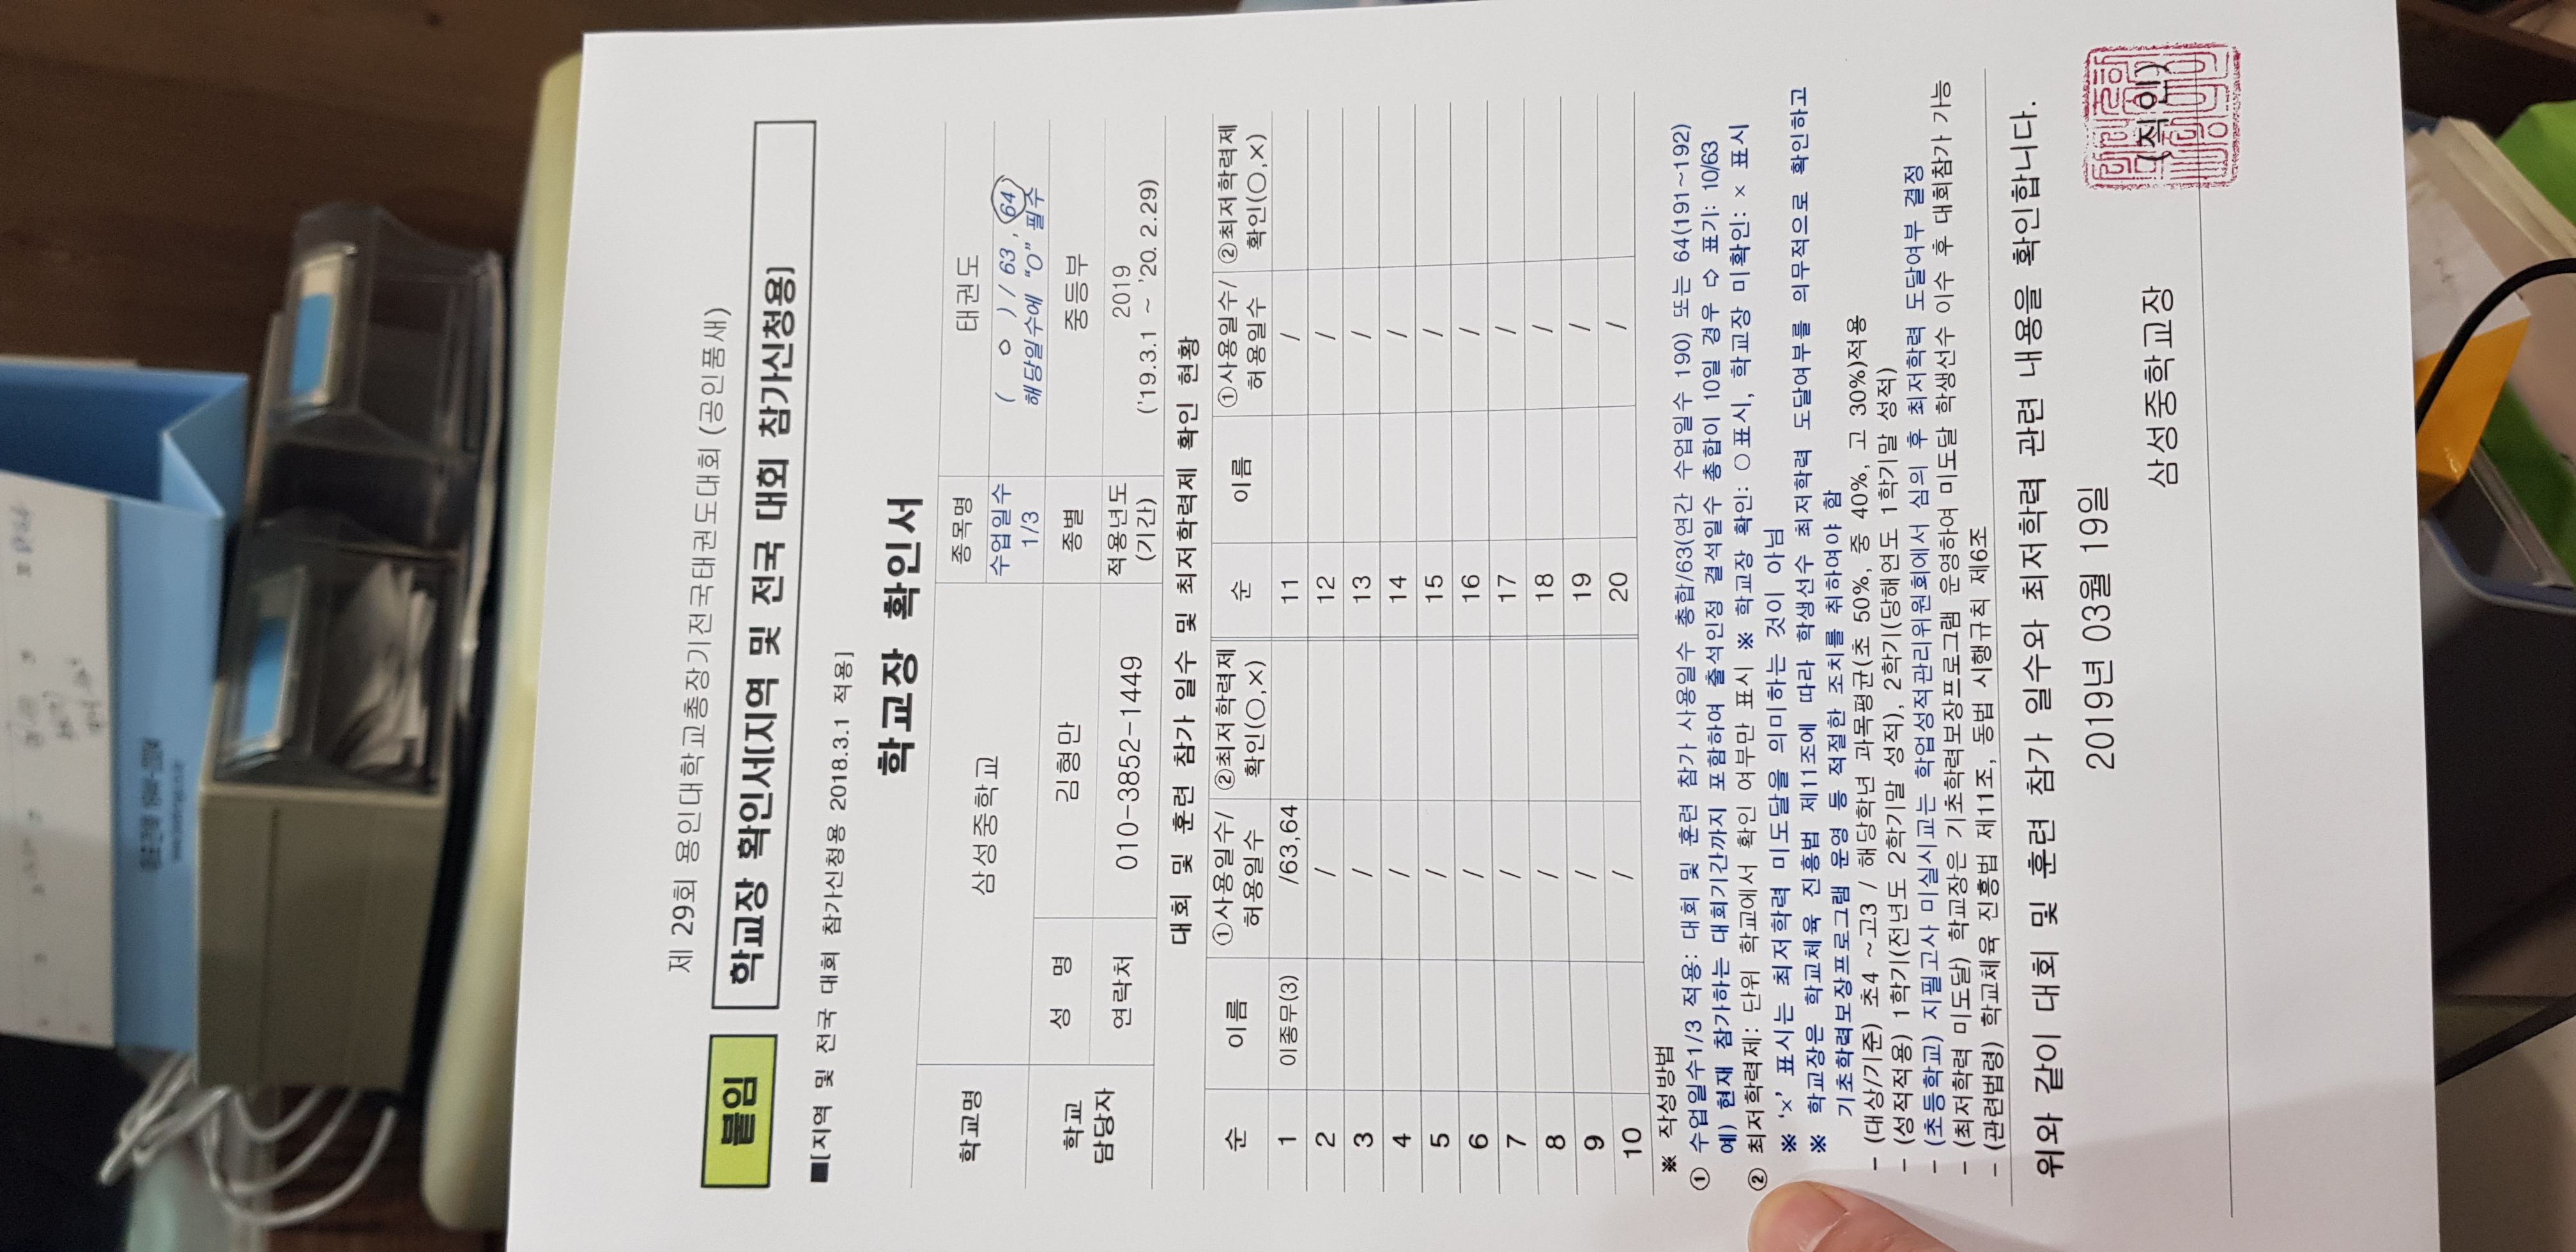 제 29회 용인대학교총장기전국태권도대회 (공인품새)
붙임
학교장 확인서[지역 및 전국 대회 참가신청용]
■[지역 및 전국 대회 참가신청용 2018.3.1 적용]
학교장 확인서
학교명 삼성중학교 종목명 태권도
수업일수 1/3 ( 0 ) / 63 , 64
해당일수에 "O" 필수
학교 담당자 성 명 김형만 종별 중등부
연락처 010-3852-1449 적용년도 (기간) 2019
('19.3.1 ~ '20. 2.29)
대회 및 훈련 참가 일수 및 최저학력제 확인 현황
순 이름 ①사용일수/허용일수 ②최저학력제 확인(○,×) 순 이름 ①사용일수/허용일수 ②최저학력제 확인(○,×)
1 이종무(3) /63,64 11 /
2 / 12 /
3 / 13 /
4 / 14 /
5 / 15 /
6 / 16 /
7 / 17 /
8 / 18 /
9 / 19 /
10 / 20 /
※ 작성방법
① 수업일수1/3 적용: 대회 및 훈련 참가 사용일수 총합/63(연간 수업일수 190) 또는 64(191~192)
예) 현재 참가하는 대회기간까지 포함하여 출석인정 결석일수 총합이 10일 경우 ⇨ 표기: 10/63
② 최저학력제: 단위 학교에서 확인 여부만 표시 ※ 학교장 확인: ○표시, 학교장 미확인: × 표시
※ '×' 표시는 최저학력 미도달을 의미하는 것이 아님
※ 학교장은 학교체육 진흥법 제11조에 따라 학생선수 최저학력 도달여부를 의무적으로 확인하고
기초학력보장프로그램 운영 등 적절한 조치를 취하여야 함
- (대상/기준) 초4 ~고3 / 해당학년 과목평균(초 50%, 중 40%, 고 30%)적용
- (성적적용) 1학기(전년도 2학기말 성적), 2학기(당해연도 1학기말 성적)
- (초등학교) 지필고사 미실시교는 학업성적관리위원회에서 심의 후 최저학력 도달여부 결정
- (최저학력 미도달) 학교장은 기초학력보장프로그램 운영하여 미도달 학생선수 이수 후 대회참가 가능
- (관련법령) 학교체육 진흥법 제11조, 동법 시행규칙 제6조
위와 같이 대회 및 훈련 참가 일수와 최저학력 관련 내용을 확인합니다.
2019년 03월 19일
삼성중학교장 (직인)